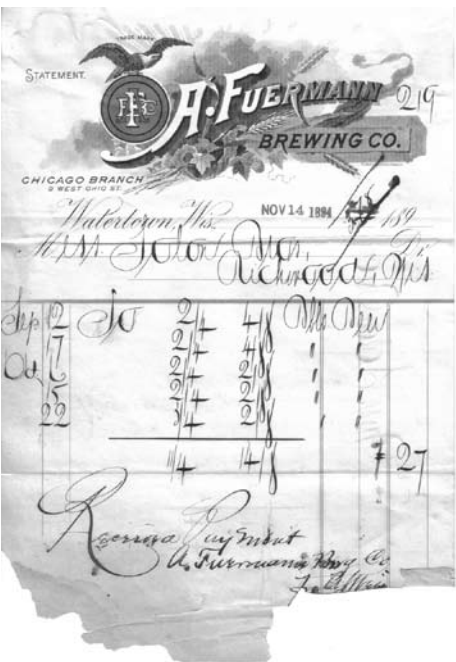 TRADE MARK
STATEMENT.
A. FUERMANN 219
BREWING CO.
CHICAGO BRANCH
9 WEST OHIO ST.
Watertown, Wis. NOV 14 1894 189
Bros, Dr
Richwood, Wis
Sep 12 To 2/4 4/8 Beer
17 2/4 2/8 " "
Oct 2/4 2/8 " "
15 2/4 2/8 " "
22 3/4 2/8 " "
11/4 14/8 27
Received Payment
A. Fuermann Brg Co